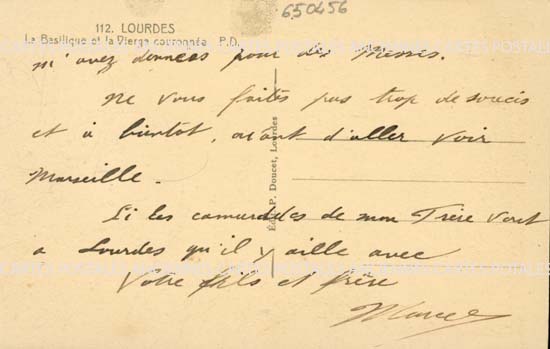 650456
112. LOURDES
La Basilique et la Vierge couronnée P.D.
m'avez données pour des Messes.
Ne vous faites pas trop de soucis
et à bientôt, avant d'aller voir
Marseille.
Si les camarades de mon Frère vont
a Lourdes qu'il y aille avec
Votre fils et frère
Marcel
Éd. P. Doucet, Lourdes